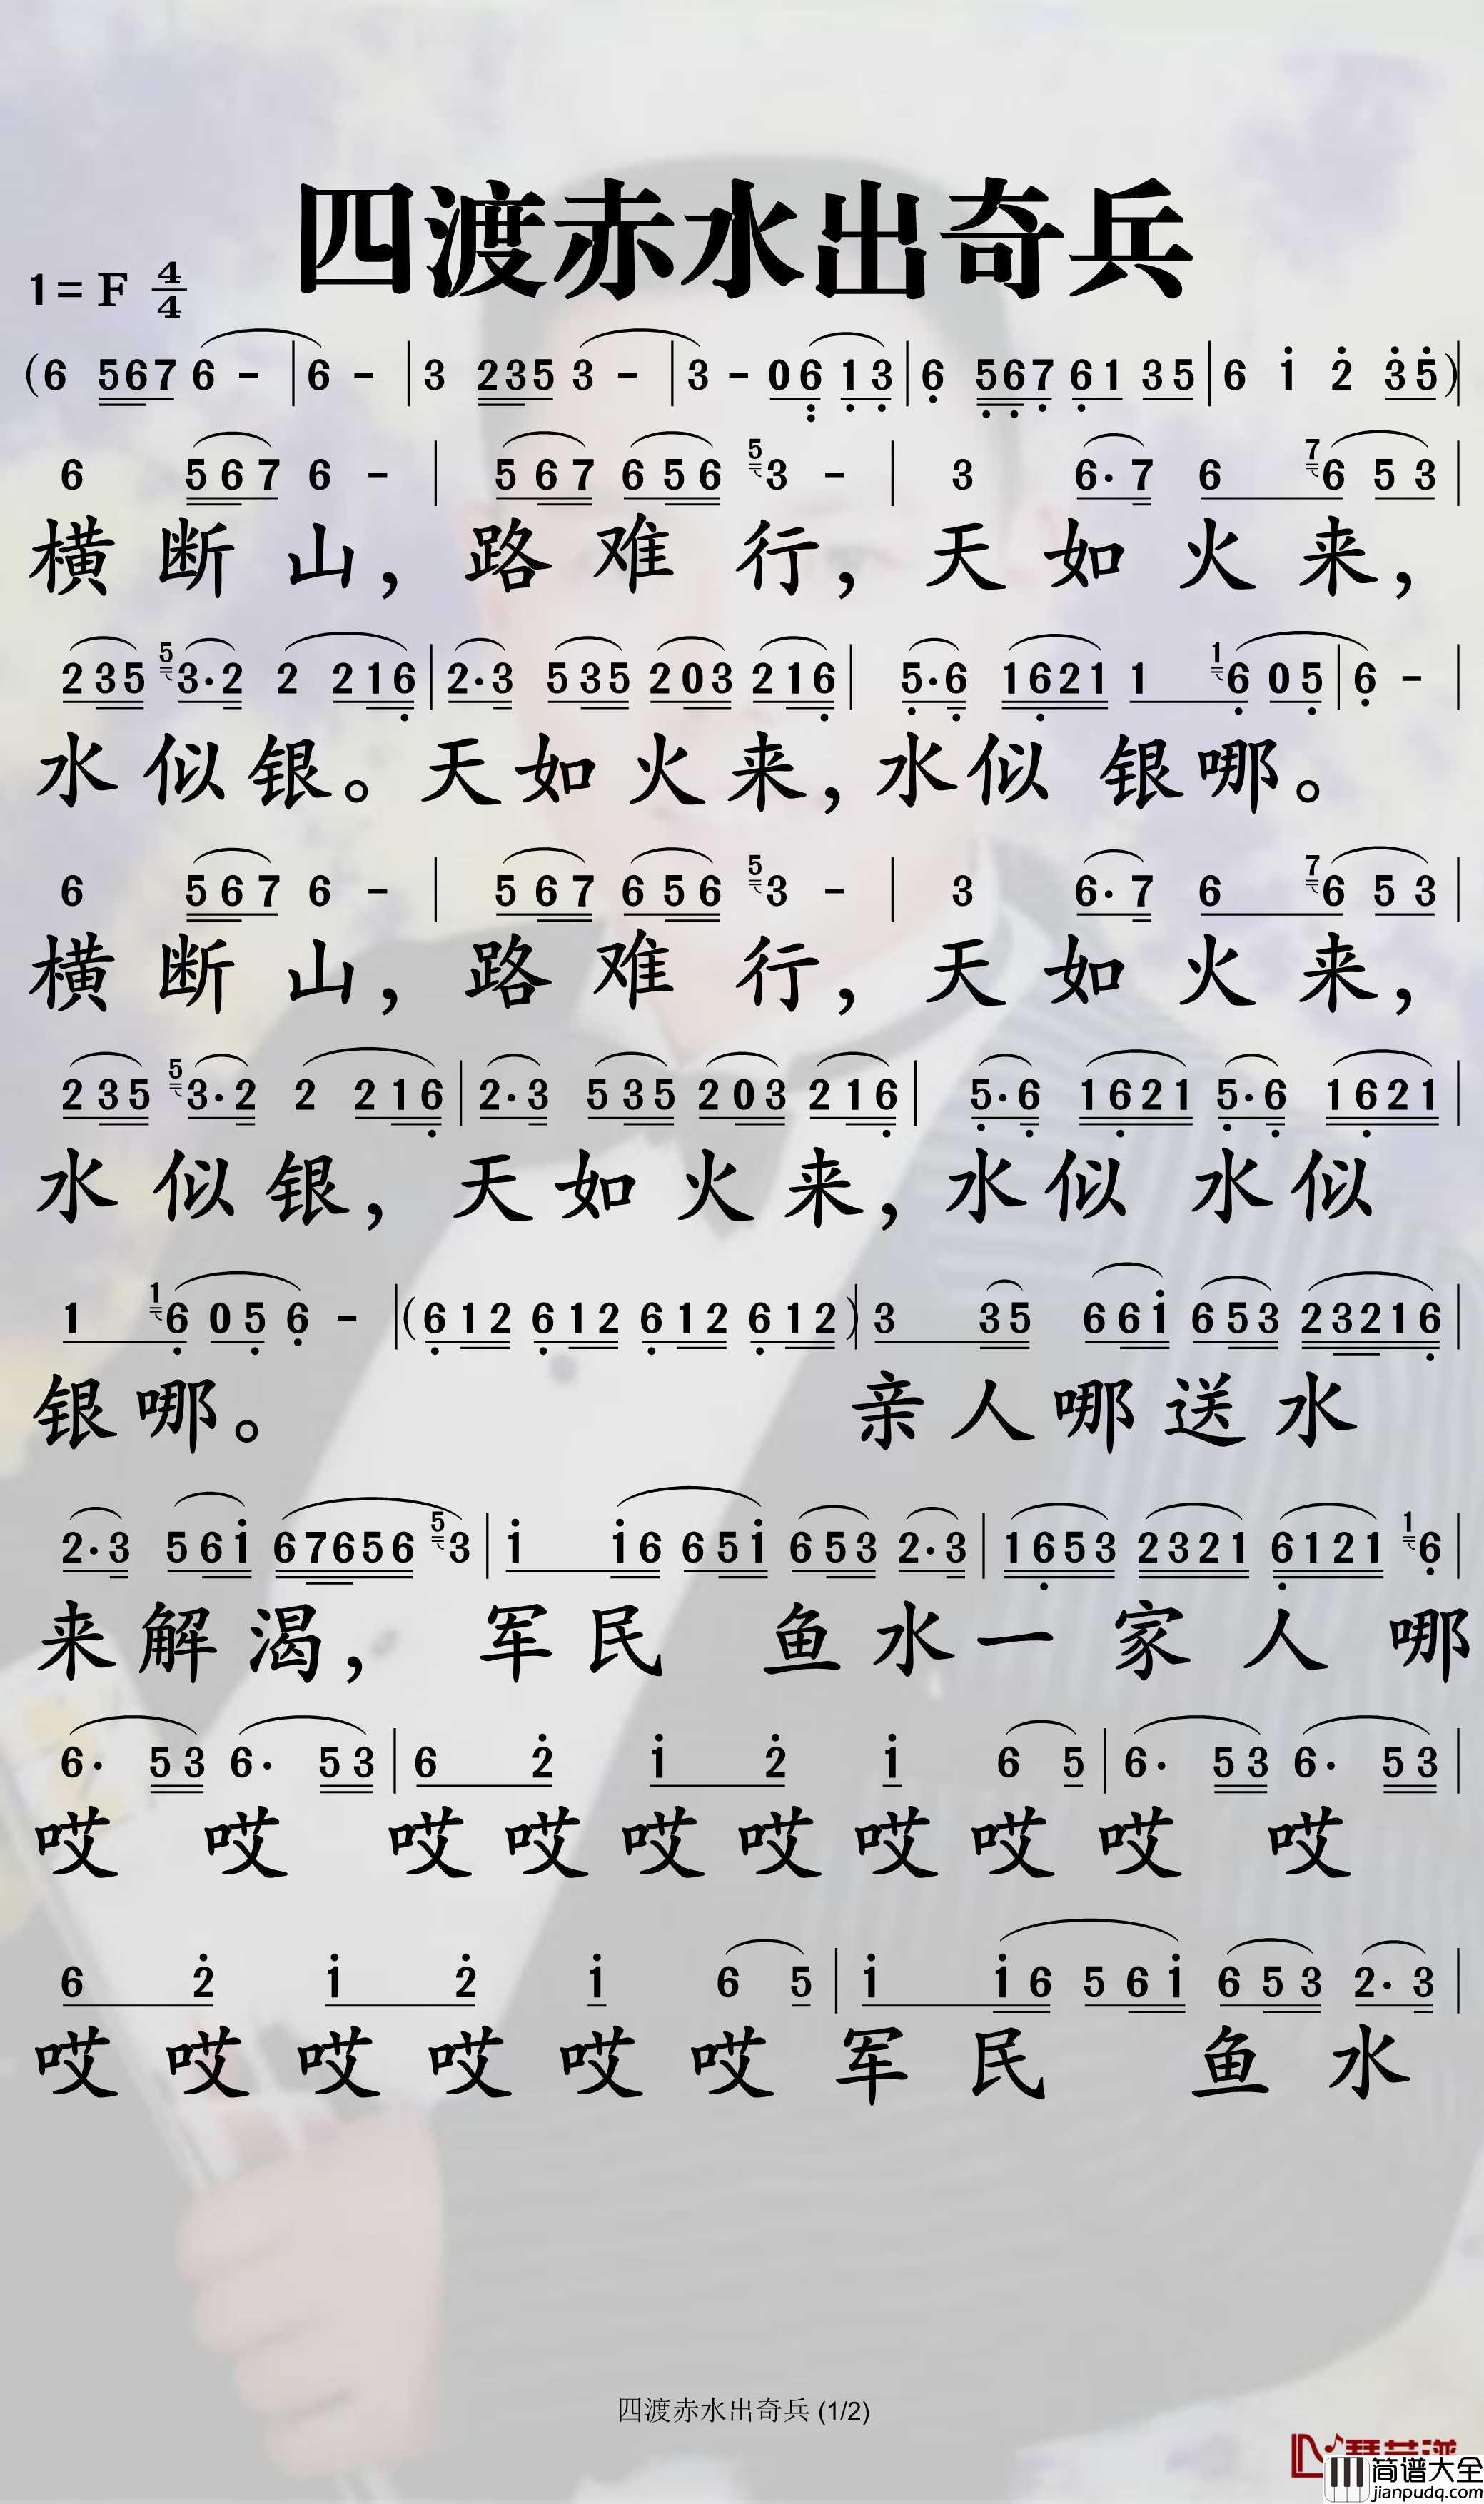 四渡赤水出奇兵
1=F 4/4
(6 567 6 - | 6 - | 3 235 3 - | 3 - 06 13 | 6 567 61 35 | 6 1 2 35)
6 567 6 - | 567 656 5 3 - | 3 6·7 6 7 6 53 |
横断山，路难行，天如火来，
235 5 3·2 2 216 | 2·3 535 203 216 | 5·6 1621 1 1 6 05 | 6 - |
水似银。天如火来，水似银哪。
6 567 6 - | 567 656 5 3 - | 3 6·7 6 7 6 53 |
横断山，路难行，天如火来，
235 5 3·2 2 216 | 2·3 535 203 216 | 5·6 1621 5·6 1621 |
水似银，天如火来，水似水似
1 1 6 05 6 - | (612 612 612 612) | 3 35 661 653 23216 |
银哪。亲人哪送水
2·3 561 67656 5 3 | 1 16 651 653 2·3 | 1653 2321 6121 1 6 |
来解渴，军民鱼水一家人哪
6· 53 6· 53 | 6 2 1 2 1 6 5 | 6· 53 6· 53 |
哎哎哎哎哎哎哎哎哎哎
6 2 1 2 1 6 5 | 1 16 561 653 2·3 |
哎哎哎哎哎哎军民鱼水
四渡赤水出奇兵 (1/2)
简谱大全
jianpudq.com